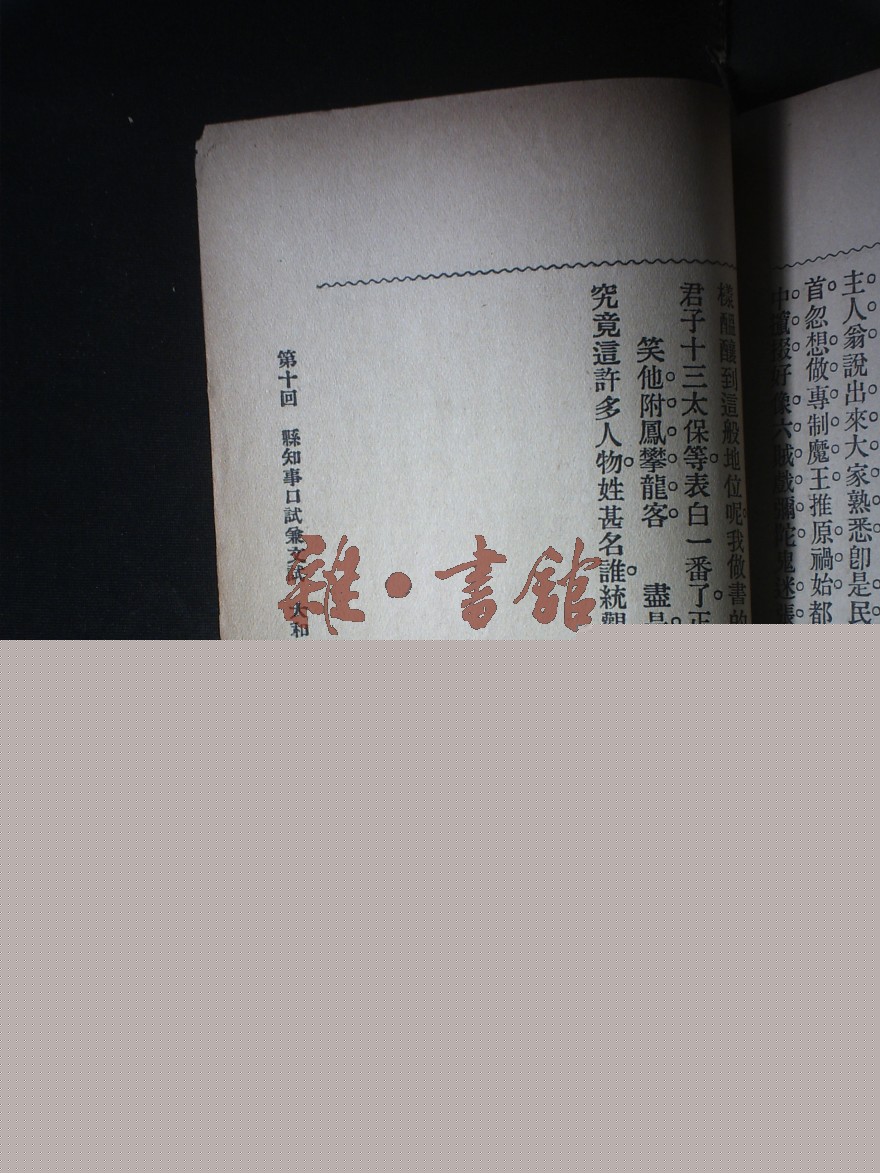 主人翁說出來大家熟悉卽是民
首忽想做專制魔王推原禍始都
好像六賊戲彌陀鬼迷張
樣醞釀到這般地位呢我做書的
君子十三太保等表白一番了正
笑他附鳳攀龍客 盡是
究竟這許多人物姓甚名誰統觀
第十回 縣知事口試兼文試 大和
雜·書館